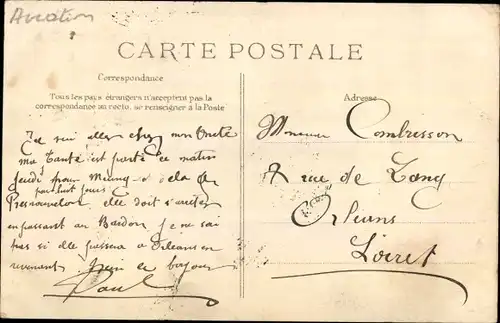 Aviation
CARTE POSTALE
Correspondance
Tous les pays étrangers n'acceptent pas la
correspondance au recto, se renseigner à la Poste
Adresse
Je suis allé chez mon Oncle
ma Tante est partie ce matin
jeudi pour Meung à delà de
par huit jours
elle doit s'arrêter
en passant au Bardon je ne sai
pas si elle passera à Orléans en
revenant bien le bonjour
Paul
Monsieur Combrisson
8 rue de
Orléans
Loiret